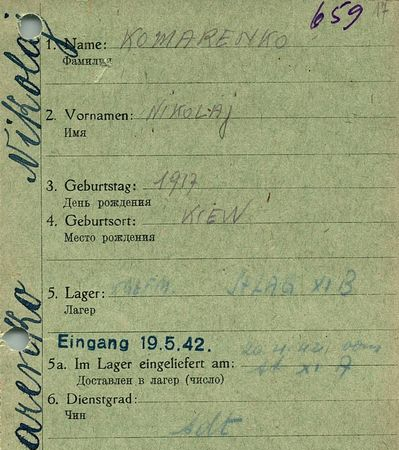 659 17
1. Name: KOMARENKO
Фамилия
2. Vornamen: NIKOLAJ
Имя
3. Geburtstag: 1917
День рождения
4. Geburtsort: KIEW
Место рождения
5. Lager: STLAG XI B
Лагер
Eingang 19.5.42.
5a. Im Lager eingeliefert am:
Доставлен в лагер (число)
XI A
6. Dienstgrad:
Чин
Sdt
arenko Nikolaj